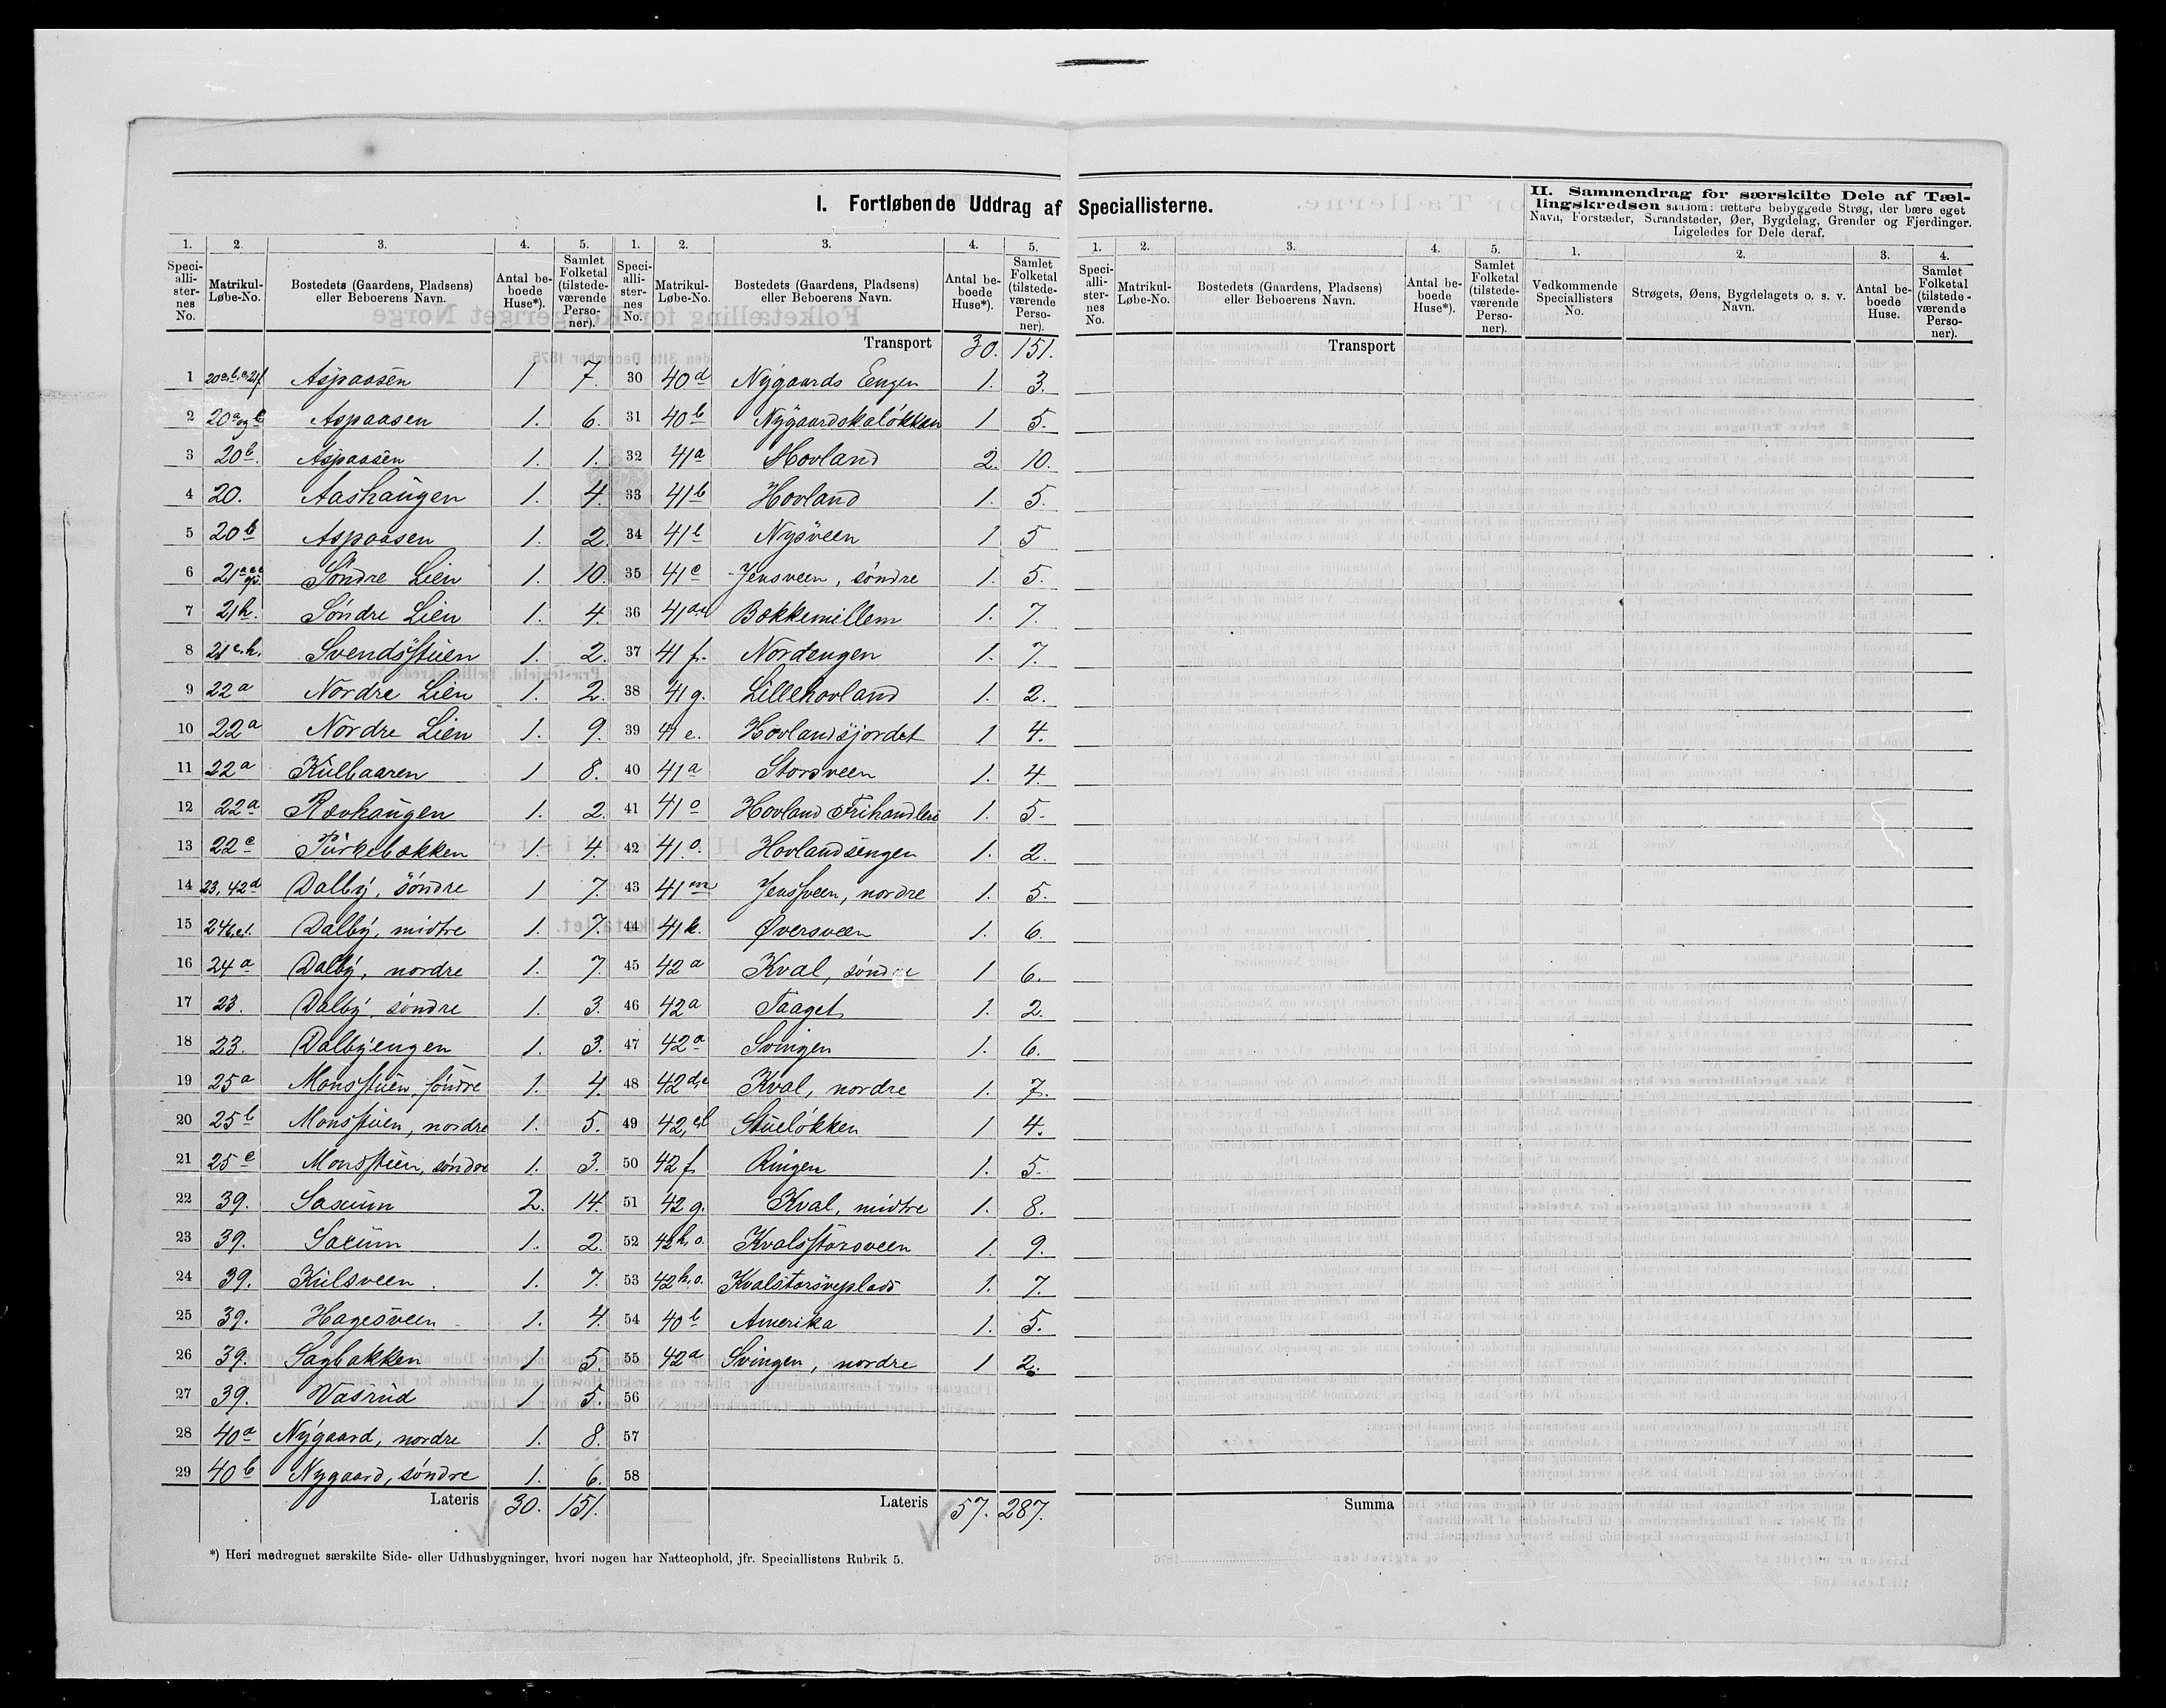 I. Fortløbende Uddrag af Speciallisterne.
II. Sammendrag for særskilte Dele af Tæl-
lingskredsen saasom: tættere bebyggede Strøg, der bære eget
Navn, Forstæder, Strandsteder, Øer, Bygdelag, Grender og Fjerdinger.
Ligeledes for Dele deraf.
1. 2. 3. 4. 5. 1. 2. 3. 4. 5. 1. 2. 3. 4. 5. 1. 2. 3. 4.
Speci-alli-ster-nes No. Matrikul-Løbe-No. Bostedets (Gaardens, Pladsens) eller Beboerens Navn. Antal be-boede Huse*). Samlet Folketal (tilstede-værende Perso-ner).
Speci-alli-ster-nes No. Matrikul-Løbe-No. Bostedets (Gaardens, Pladsens) eller Beboerens Navn. Antal be-boede Huse*). Samlet Folketal (tilstede-værende Perso-ner).
Speci-alli-ster-nes No. Matrikul-Løbe-No. Bostedets (Gaardens, Pladsens) eller Beboerens Navn. Antal be-boede Huse*). Samlet Folketal (tilstede-værende Perso-ner).
Vedkommende Speciallisters No. Strøgets, Øens, Bygdelagets o. s. v. Navn. Antal be-boede Huse. Samlet Folketal (tilstede-værende Perso-ner).
Transport 30. 151. Transport
1 Aspaasen 1 7. 30 40d Nygaards Eengen 1. 3.
2 20a og b Aspaasen 1. 6. 31 40b Nygaardskaløkken 1 5.
3 20b. Aspaasen 1. 1. 32 41a Hovland 2. 10.
4 20. Aashaugen 1. 4. 33 41b Hovland 1. 5.
5 20b Aspaasen 1. 2. 34 41b Nysveen 1 5
6 Søndre Lien 1. 10. 35 41c Jensveen, søndre 1. 5.
7 21h. Søndre Lien 1. 4. 36 Bakkemillem 1. 7.
8 21c.h. Svendsstuen 1. 2. 37 41f. Nordengen 1. 7.
9 22a Nordre Lien 1. 2. 38 41g. Lillehovland 1. 2.
10 22a Nordre Lien 1. 9. 39 41e. Hovlandsjordet 1 4.
11 22a Kulbaaren 1 8. 40 41a Storsveen 1. 4.
12 22a Rævhaugen 1. 2. 41 41o Hovland Frihandleri 1. 5.
13 22c Turkebakken 1. 4. 42 41.o. Hovlandsengen 1. 2.
14 23, 42d Dalby, søndre 1 7. 43 41m Jensveen, nordre 1. 5.
15 Dalby, midtre 1. 7. 44 41k. Øversveen 1. 6.
16 24a Dalby, nordre 1. 7. 45 42a Kval, søndre 1 6.
17 23. Dalby, søndre 1. 3. 46 42a Taaget 1. 2.
18 23. Dalbyengen 1. 3. 47 42a Svingen 1. 6.
19 25a Monsstuen, søndre 1. 4. 48 42d,e Kval, nordre 1. 7.
20 25b Monsstuen, nordre 1. 5. 49 Stueløkken 1 4.
21 25c Monsstuen, søndre 1. 3. 50 42f Ringen 1. 5.
22 39. Saxum 2. 14. 51 42g. Kval, midtre 1. 8.
23 39. Saxum 1. 2. 52 42h,o. Kvalsstorsveen 1. 9.
24 39. Kulsveen 1. 7. 53 42h.o. Kvalstorsveplads 1. 7.
25 39. Hagesveen 1. 4. 54 40b Amerika 1. 5.
26 39. Sagbakken 1 5. 55 42a Svingen, nordre 1 2.
27 39. Vasrud 1 5. 56
28 40a Nygaard, nordre 1. 8. 57
29 40b Nygaard, søndre 1. 6. 58
Lateris 30. 151. Lateris 57. 287. Summa
*) Heri medregnet særskilte Side- eller Udhusbygninger, hvori nogen har Natteophold, jfr. Speciallistens Rubrik 5.